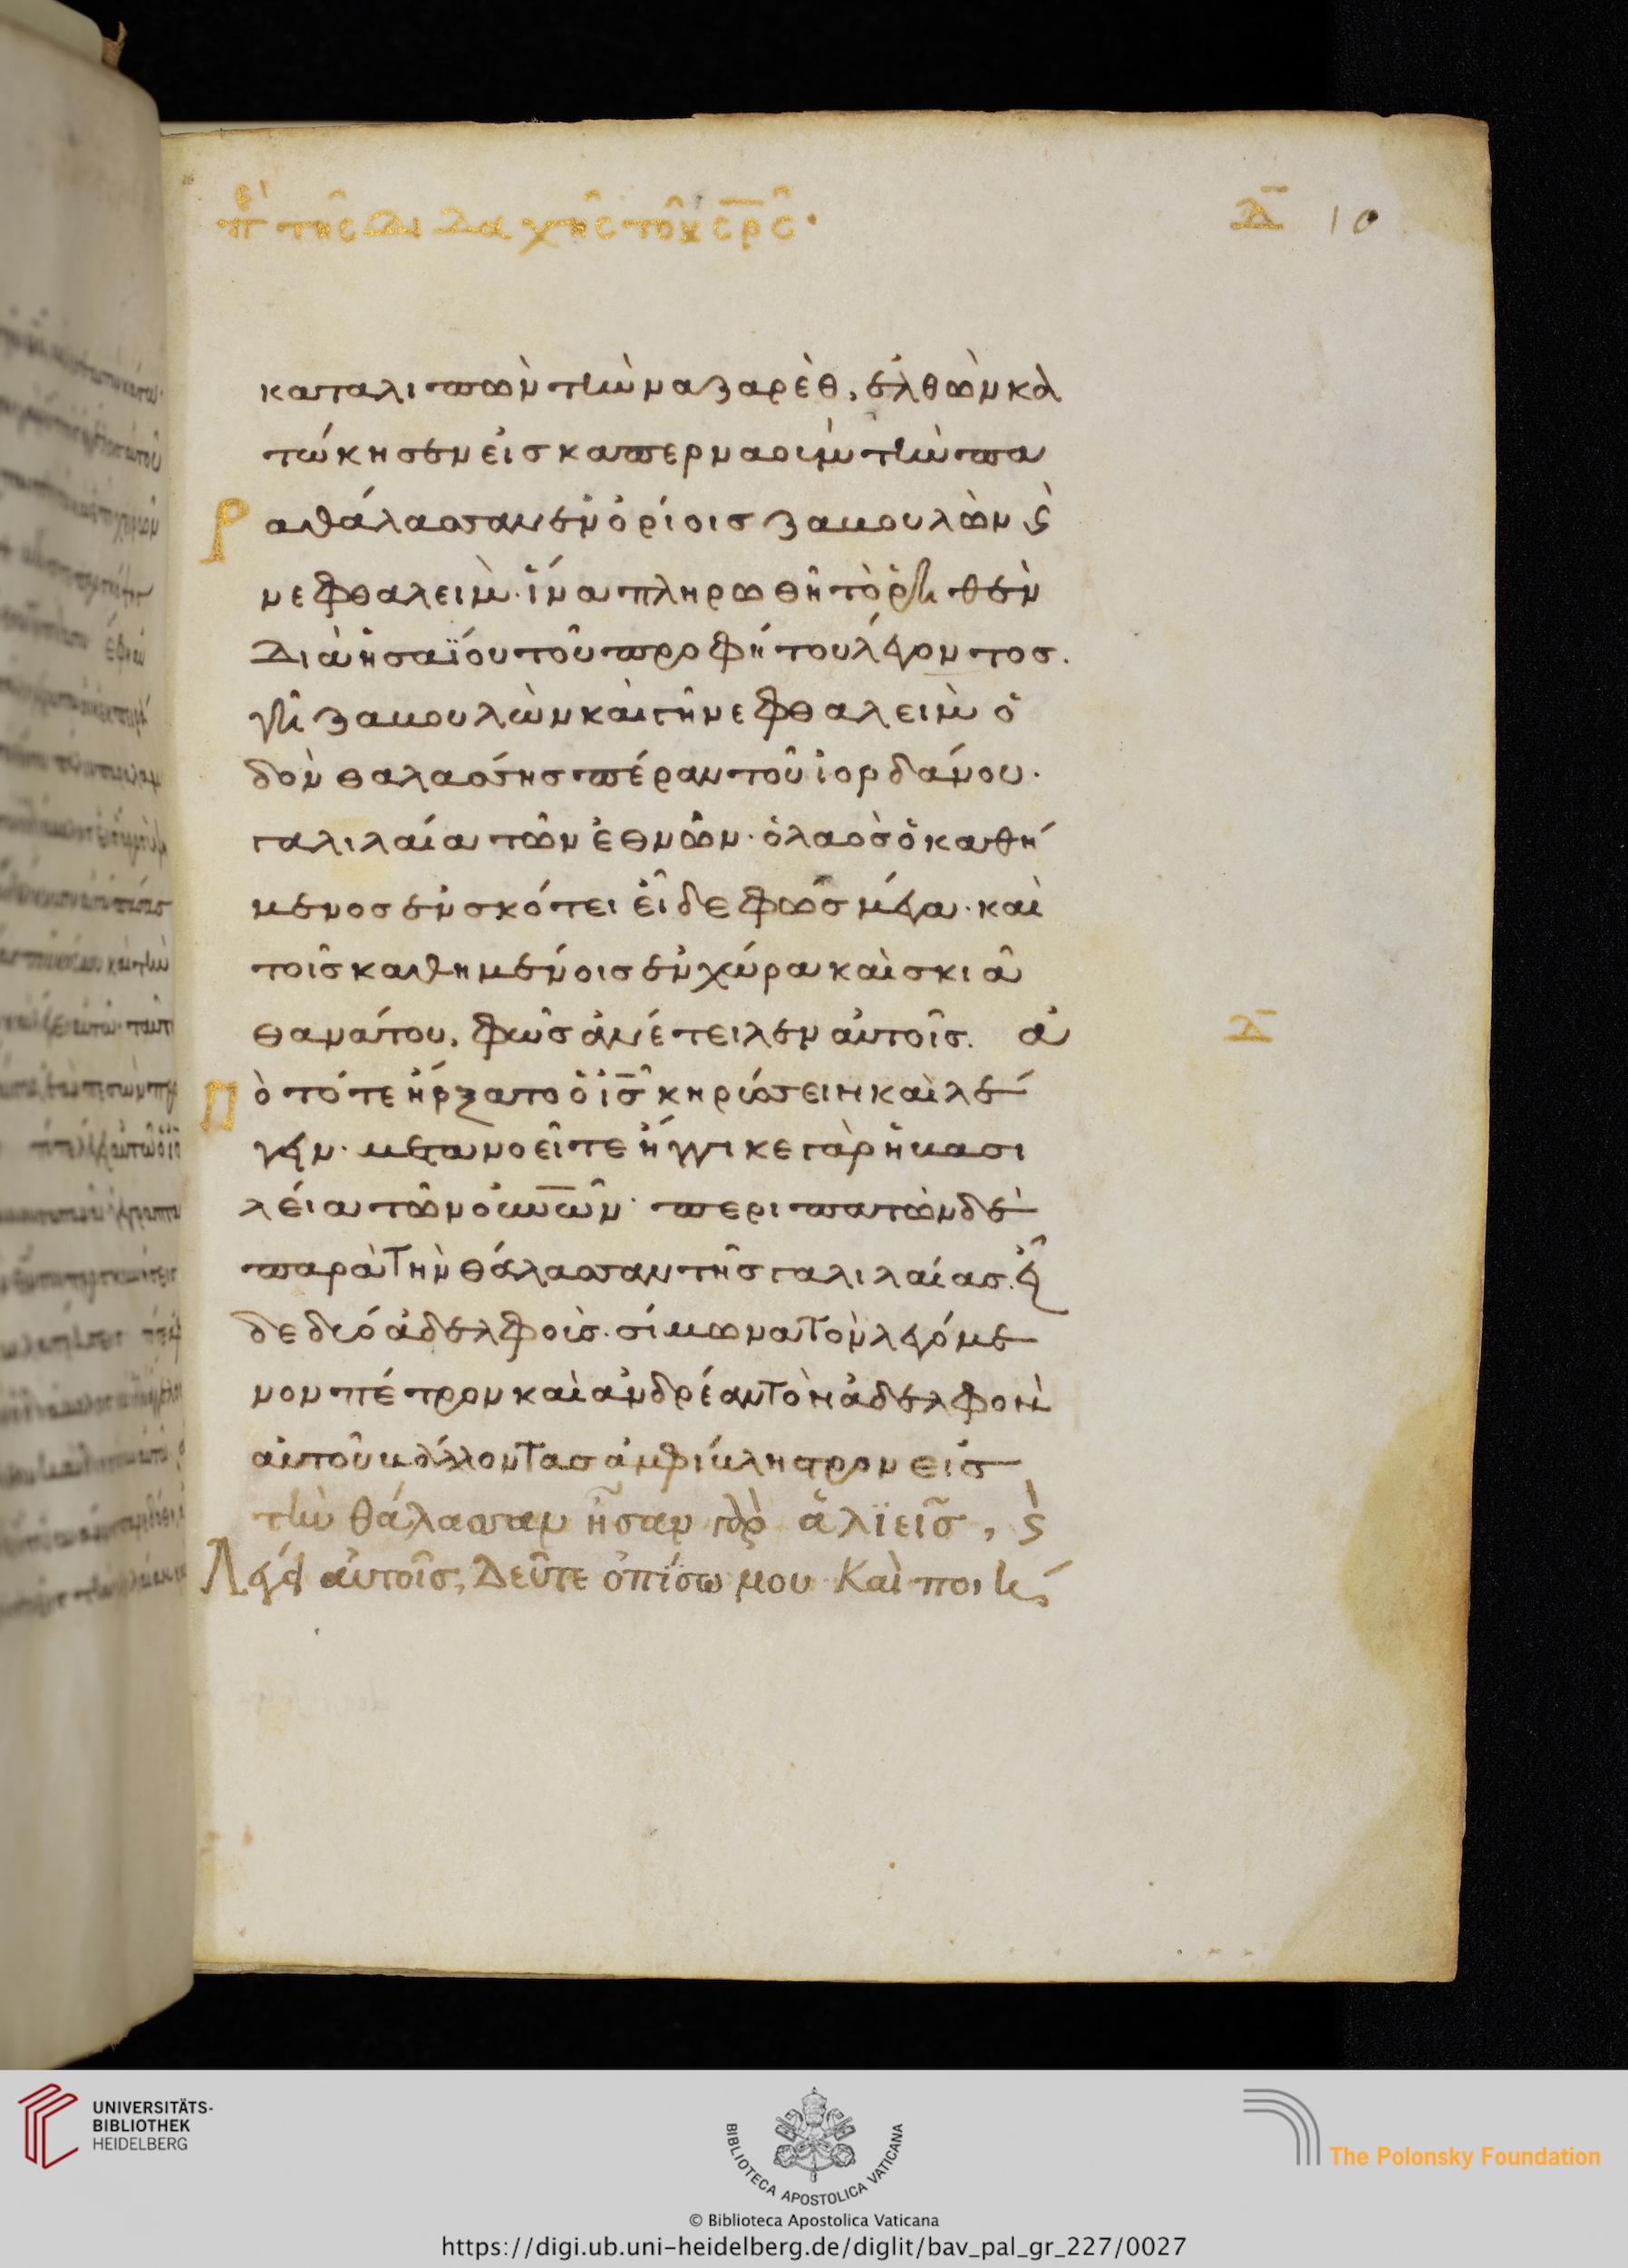 πε΄ τῆς διδαχῆς τοῦ σ̅ρ̅ς· Δ̅ 10
καταλιπὼν τὴν ναζαρὲθ, ἐλθὼν κα
τώκησεν εἰς καπερναοὺμ τὴν πα
ραθάλασσαν ἐν ὁρίοις ζαβουλὼν ϛ̀
νεφθαλεὶμ· ἵνα πληρωθῆ τὸ ῥηθὲν
διὰ ἡσαΐου τοῦ προφήτου λέγοντος.
γῆ ζαβουλὼν καὶ γῆ νεφθαλεὶμ ὁ
δὸν θαλάσσης πέραν τοῦ ἰορδάνου.
γαλιλαία τῶν ἐθνῶν· ὁ λαὸς ὁ καθή
μενος ἐν σκότει εἶδε φῶς μέγα· καὶ
τοῖς καθημένοις ἐν χώρα καὶ σκιᾶ
θανάτου, φῶς ἀνέτειλεν αὐτοῖς. ἀ Δ̅
Πὸ τότε ἤρξατο ὁ ι̅ς̅ κηρύσσειν καὶ λέ
γειν· μετανοεῖτε ἤγγικε γὰρ ἡ βασι
λεία τῶν ο̅υ̅ν̅ῶν· περιπατῶν δὲ
παρὰ τὴν θάλασσαν τῆς γαλιλαίας. εἶ
δε δύο ἀδελφοὺς. σίμωνα τὸν λεγόμε
νον πέτρον καὶ ἀνδρέαν τὸν ἀδελφὸν
αὐτοῦ βάλλοντας ἀμφίβληστρον εἰς
τὴν θάλασσαν ἦσαν γὰρ ἁλϊεῖς, ϛ̀
Λέγει αὐτοῖς, Δεῦτε ὀπίσω μου Καὶ ποιή
UNIVERSITÄTS-
BIBLIOTHEK
HEIDELBERG
BIBLIOTECA APOSTOLICA VATICANA
The Polonsky Foundation
© Biblioteca Apostolica Vaticana
https://digi.ub.uni-heidelberg.de/diglit/bav_pal_gr_227/0027